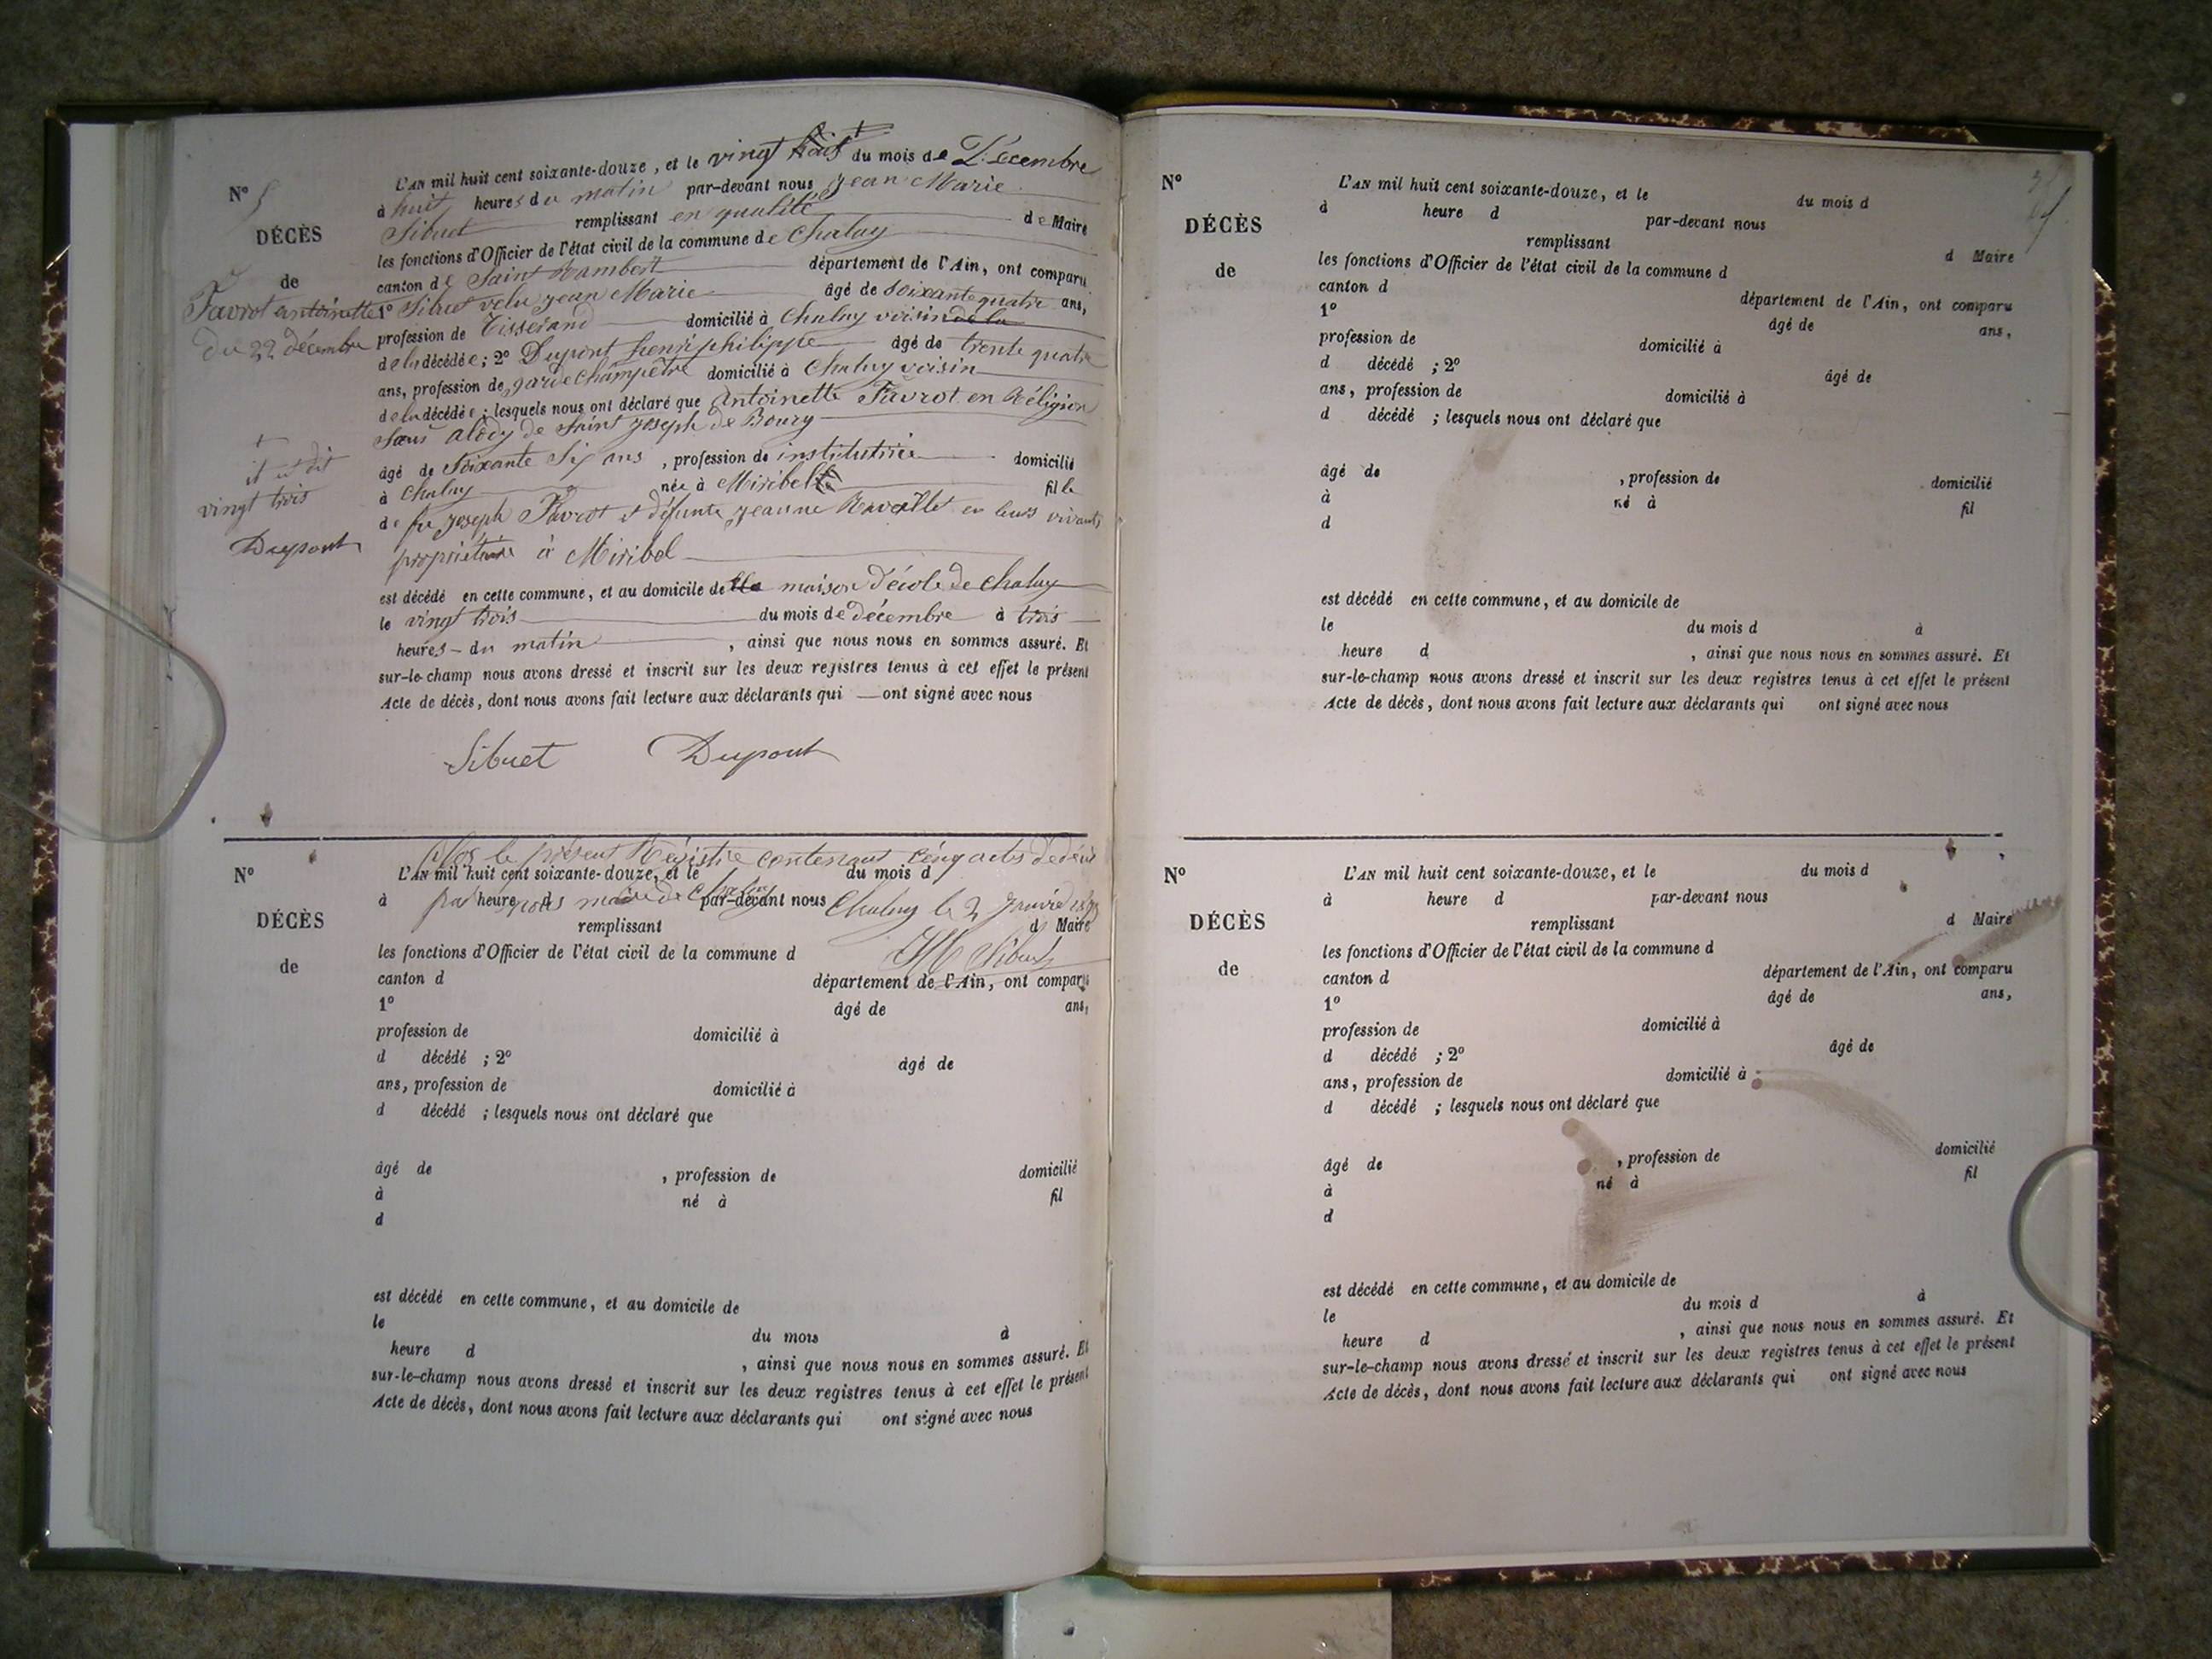 N° 5
DÉCÈS
de
Favrot antoinette
Du 22 décembre
L'AN mil huit cent soixante-douze, et le vingt huit du mois de Décembre
à huit heures du matin par-devant nous Jean Marie
Sibuet remplissant en qualité de Maire
les fonctions d'Officier de l'état civil de la commune de Chaley
canton de Saint Rambert département de l'Ain, ont comparu
1° Sibuet velu Jean Marie âgé de soixante quatre ans,
profession de Tisserand domicilié à Chaley voisin de la
de la décédée; 2° Dupont henri philippe âgé de trente quatre
ans, profession de garde Champêtre domicilié à Chaley voisin
de la décédée; lesquels nous ont déclaré que Antoinette Favrot en Réligion
Sœur de Saint Joseph de Bourg
âgé de Soixante Six ans, profession de institutrice domicilié
à Chaley née à Miribel fille
de fu Joseph Favrot et défunte Jeanne en leurs vivants
propriétaire à Miribel
+
il est dit
vingt trois
Dupont
est décédé en cette commune, et au domicile de la maison d'école de Chaley
le vingt trois du mois de décembre à trois
heures du matin, ainsi que nous nous en sommes assuré. Et
sur-le-champ nous avons dressé et inscrit sur les deux registres tenus à cet effet le présent
Acte de décès, dont nous avons fait lecture aux déclarants qui ont signé avec nous
Sibuet Dupont
Clos le présent Registre contenant cinq acts de décès
N°
DÉCÈS
de
L'AN mil huit cent soixante-douze, et le du mois d
par nous maire de Chaley Chaley le 2 Janvier 1873
à heure d par-devant nous
remplissant d Maire
JM Sibuet
les fonctions d'Officier de l'état civil de la commune d
canton d département de l'Ain, ont comparu
1° âgé de ans,
profession de domicilié à
d décédé ; 2° âgé de
ans, profession de domicilié à
d décédé ; lesquels nous ont déclaré que
âgé de , profession de domicilié
à né à fil
d
est décédé en cette commune, et au domicile de
le du mois à
heure d , ainsi que nous nous en sommes assuré. Et
sur-le-champ nous avons dressé et inscrit sur les deux registres tenus à cet effet le présent
Acte de décès, dont nous avons fait lecture aux déclarants qui ont signé avec nous
N°
DÉCÈS
de
L'AN mil huit cent soixante-douze, et le du mois d
à heure d par-devant nous
remplissant d Maire
les fonctions d'Officier de l'état civil de la commune d
canton d département de l'Ain, ont comparu
1° âgé de ans,
profession de domicilié à
d décédé ; 2° âgé de
ans, profession de domicilié à
d décédé ; lesquels nous ont déclaré que
âgé de , profession de domicilié
à né à fil
d
est décédé en cette commune, et au domicile de
le du mois d à
heure d , ainsi que nous nous en sommes assuré. Et
sur-le-champ nous avons dressé et inscrit sur les deux registres tenus à cet effet le présent
Acte de décès, dont nous avons fait lecture aux déclarants qui ont signé avec nous
N°
DÉCÈS
de
L'AN mil huit cent soixante-douze, et le du mois d
à heure d par-devant nous
remplissant d Maire
les fonctions d'Officier de l'état civil de la commune d
canton d département de l'Ain, ont comparu
1° âgé de ans,
profession de domicilié à
d décédé ; 2° âgé de
ans, profession de domicilié à
d décédé ; lesquels nous ont déclaré que
âgé de , profession de domicilié
à né à fil
d
est décédé en cette commune, et au domicile de
le du mois d à
heure d , ainsi que nous nous en sommes assuré. Et
sur-le-champ nous avons dressé et inscrit sur les deux registres tenus à cet effet le présent
Acte de décès, dont nous avons fait lecture aux déclarants qui ont signé avec nous